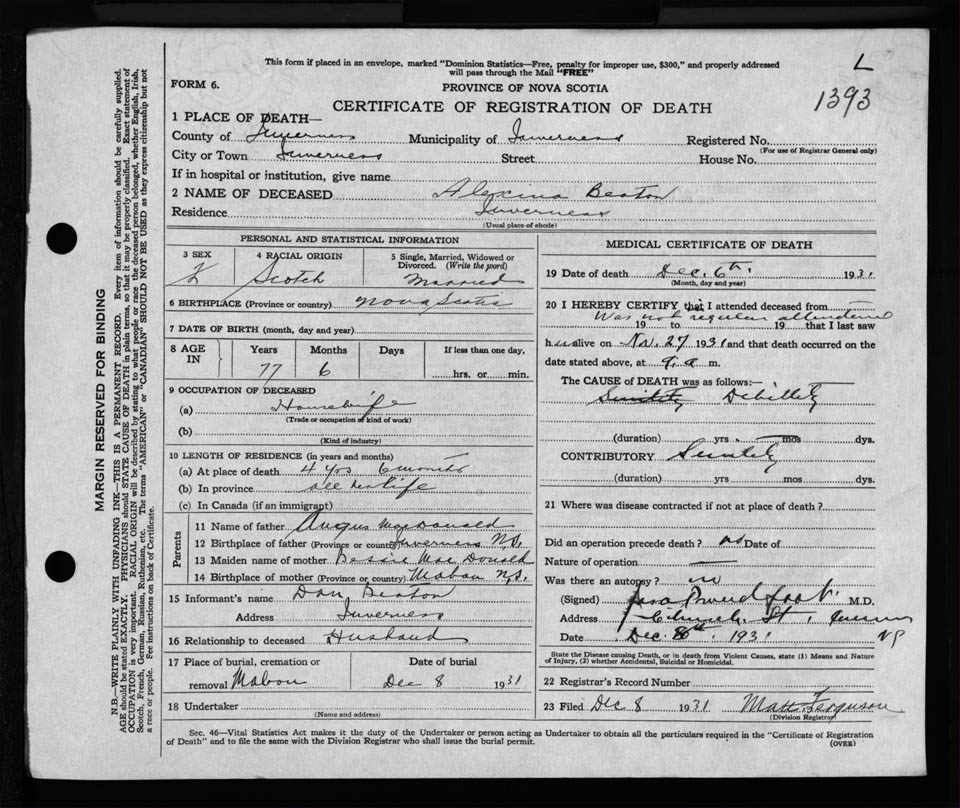 This form if placed in an envelope, marked "Dominion Statistics—Free, penalty for improper use, $300," and properly addressed
will pass through the Mail "FREE"
L
1393
FORM 6.
PROVINCE OF NOVA SCOTIA
CERTIFICATE OF REGISTRATION OF DEATH
1 PLACE OF DEATH—
County of Inverness Municipality of Inverness Registered No.
(For use of Registrar General only)
City or Town Inverness Street House No.
If in hospital or institution, give name
2 NAME OF DECEASED Alexina Beaton
Residence Inverness
(Usual place of abode)
PERSONAL AND STATISTICAL INFORMATION
3 SEX F
4 RACIAL ORIGIN Scotch
5 Single, Married, Widowed or Divorced. (Write the word) Married
6 BIRTHPLACE (Province or country) Nova Scotia
7 DATE OF BIRTH (month, day and year)
8 AGE IN Years 77 Months 6 Days If less than one day, hrs. or min.
9 OCCUPATION OF DECEASED
(a) Housewife
(Trade or occupation or kind of work)
(b)
(Kind of industry)
10 LENGTH OF RESIDENCE (in years and months)
(a) At place of death 4 yrs 6 months
(b) In province all her life
(c) In Canada (if an immigrant)
Parents
11 Name of father Angus MacDonald
12 Birthplace of father (Province or country) Inverness N.S.
13 Maiden name of mother Bessie MacDonald
14 Birthplace of mother (Province or country) Mabou N.S.
15 Informant's name Dan Beaton
Address Inverness
16 Relationship to deceased Husband
17 Place of burial, cremation or removal Mabou
Date of burial Dec 8 1931
18 Undertaker
(Name and address)
MEDICAL CERTIFICATE OF DEATH
19 Date of death Dec. 6th. 1931
(Month, day and year)
20 I HEREBY CERTIFY that I attended deceased from
Was not regular attendance
19 to 19 that I last saw
h alive on Nov. 27 1931 and that death occurred on the
date stated above, at 9. a m.
The CAUSE OF DEATH was as follows:
Senility Debility
(duration) yrs. mos dys.
CONTRIBUTORY Senility
(duration) yrs mos dys.
21 Where was disease contracted if not at place of death?
Did an operation precede death? no Date of
Nature of operation
Was there an autopsy? no
(Signed) Proudfoot M.D.
Address Church St, Inverness
NS
Date Dec. 8th, 1931
State the Disease causing Death, or in death from Violent Causes, state (1) Means and Nature
of Injury, (2) whether Accidental, Suicidal or Homicidal.
22 Registrar's Record Number
23 Filed Dec 8 1931 Matt. Ferguson
(Division Registrar)
Sec. 46—Vital Statistics Act makes it the duty of the Undertaker or person acting as Undertaker to obtain all the particulars required in the "Certificate of Registration
of Death" and to file the same with the Division Registrar who shall issue the burial permit.
(OVER)
MARGIN RESERVED FOR BINDING
N.B.—WRITE PLAINLY WITH UNFADING INK—THIS IS A PERMANENT RECORD. Every item of information should be carefully supplied.
AGE should be stated EXACTLY. PHYSICIANS should STATE CAUSE OF DEATH in plain terms, so that it may be properly classified. Exact statement of
OCCUPATION is very important. RACIAL ORIGIN will be described by stating to what people or race the deceased person belonged, whether English, Irish,
Scotch, French, German, Russian, Ruthenian, etc. The terms "AMERICAN" or "CANADIAN" SHOULD NOT BE USED as they express citizenship but not
a race or people. See instructions on back of Certificate.